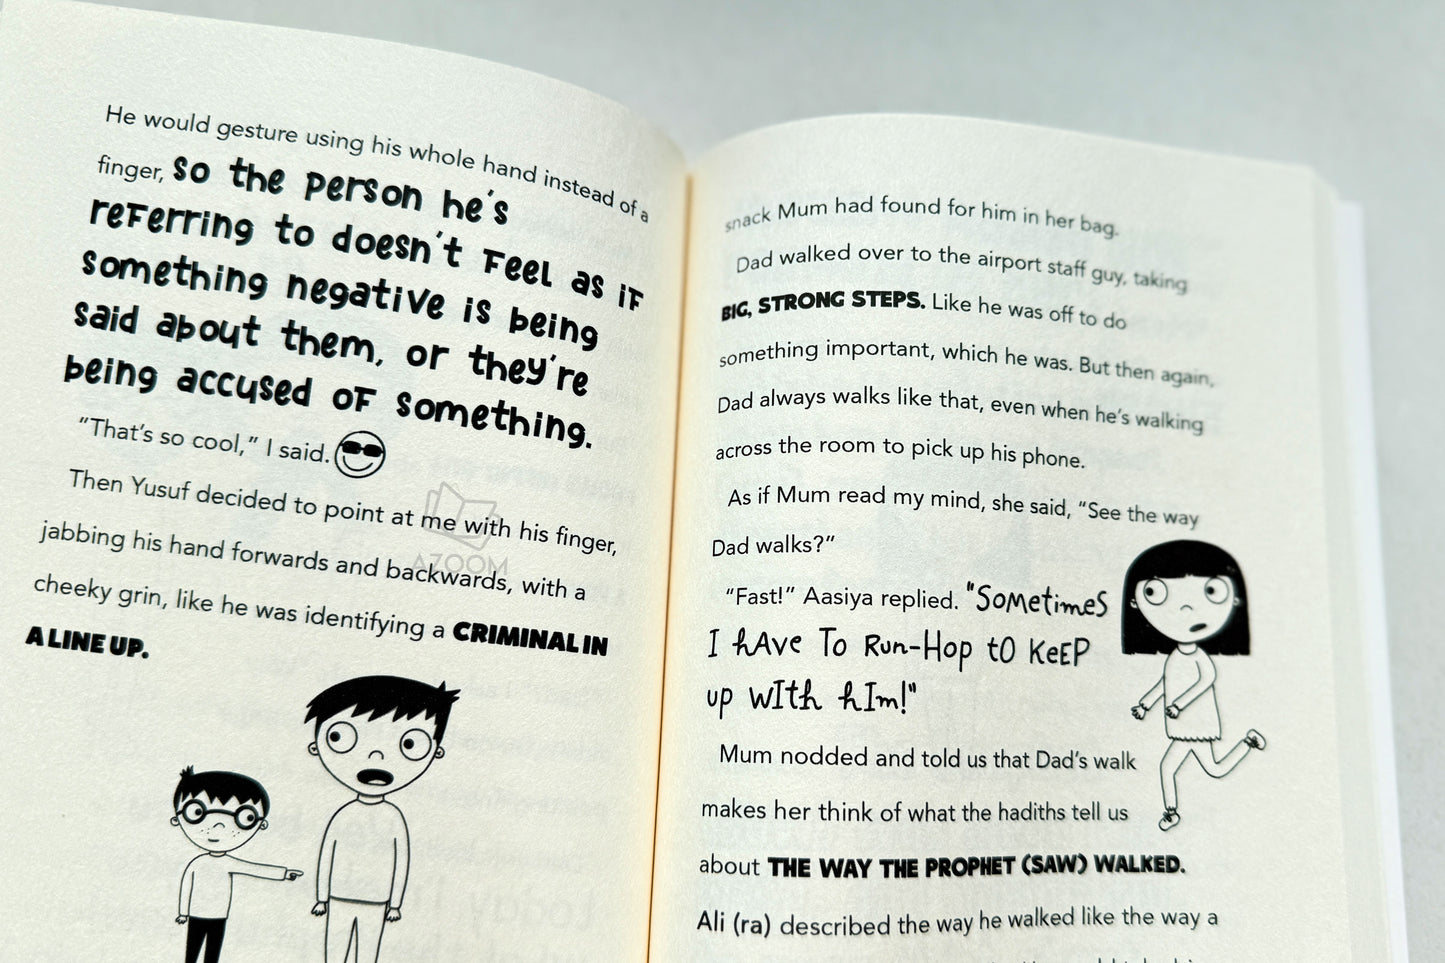 He would gesture using his whole hand instead of a
finger, so the person he's
referring to doesn't feel as if
something negative is being
said about them, or they're
being accused of something.
"That's so cool," I said.
Then Yusuf decided to point at me with his finger,
jabbing his hand forwards and backwards, with a
cheeky grin, like he was identifying a CRIMINAL IN
A LINE UP.
AZOOM
snack Mum had found for him in her bag.
Dad walked over to the airport staff guy, taking
BIG, STRONG STEPS. Like he was off to do
something important, which he was. But then again,
Dad always walks like that, even when he's walking
across the room to pick up his phone.
As if Mum read my mind, she said, "See the way
Dad walks?"
"Fast!" Aasiya replied. "Sometimes
I have to run-hop to keep
up with him!"
Mum nodded and told us that Dad's walk
makes her think of what the hadiths tell us
about THE WAY THE PROPHET (SAW) WALKED.
Ali (ra) described the way he walked like the way a